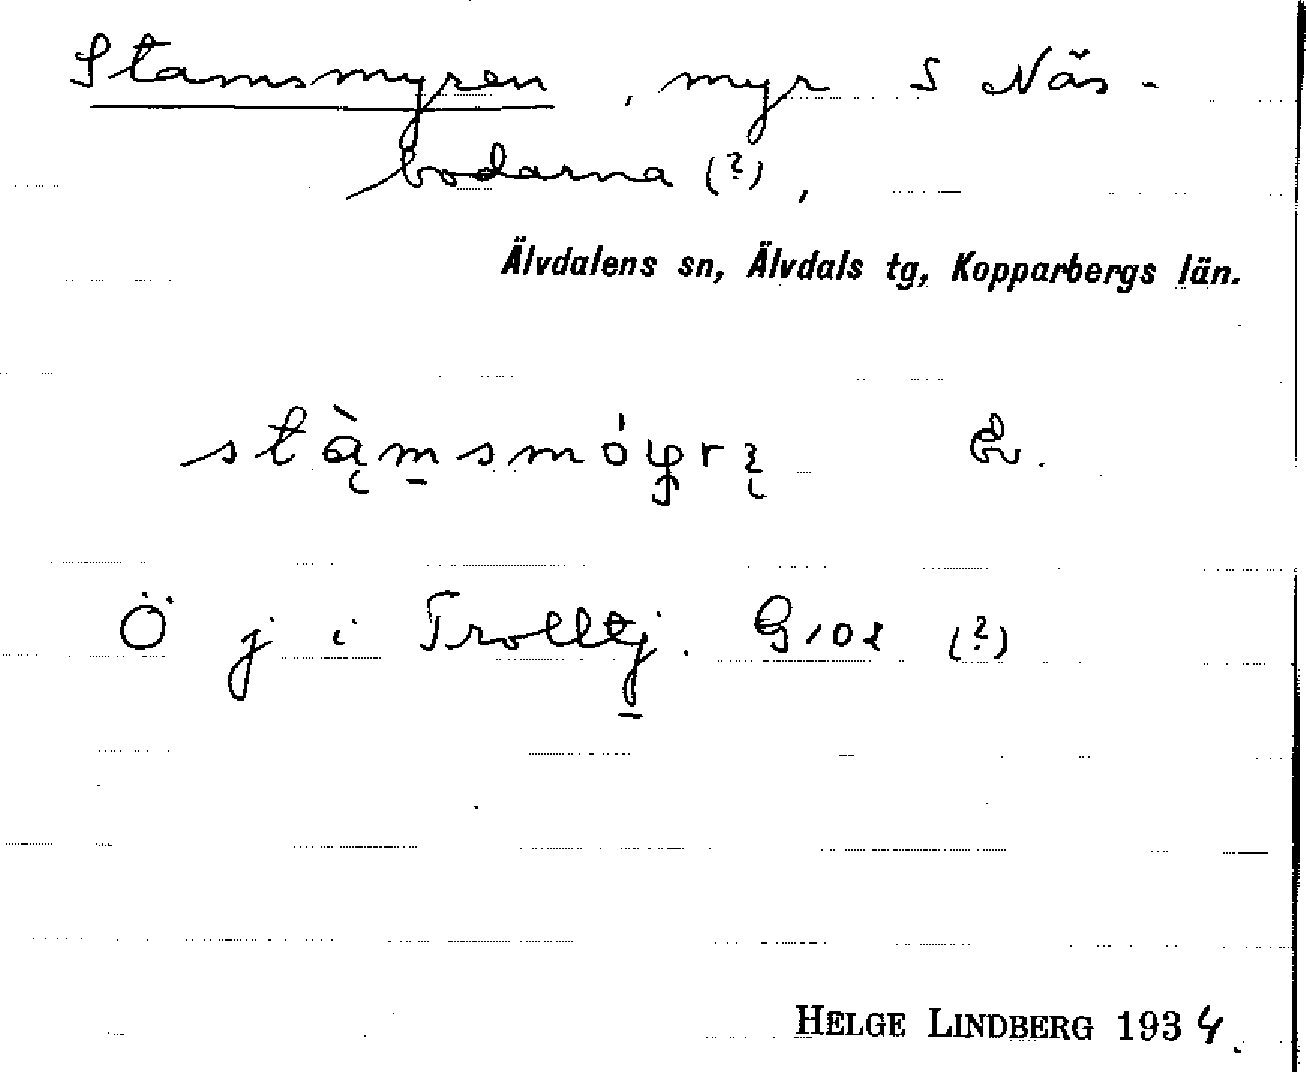 Stamsmyren, myr S Näs-
bodarna (?),
Älvdalens sn, Älvdals tg, Kopparbergs län.
Ö j i Trolltj. G10l (?)
HELGE LINDBERG 1934.